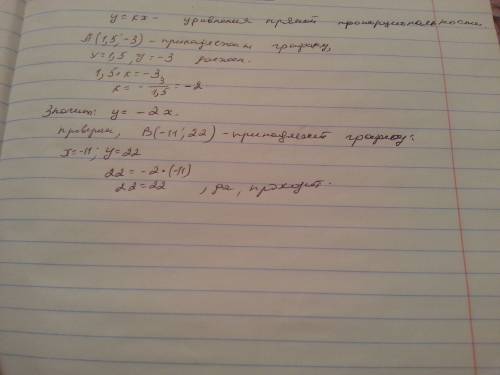 y = kx - уравнения прямой пропорциональности.
A(1,5; -3) - принадлежит графику,
x = 1,5, y = -3
1,5 • k = -3
k = - 3/1,5 = -2
Значит: y = -2x.
проверим, B(-11; 22) - принадлежит графику:
x = -11; y = 22
22 = -2 • (-11)
22 = 22, да, проходит.